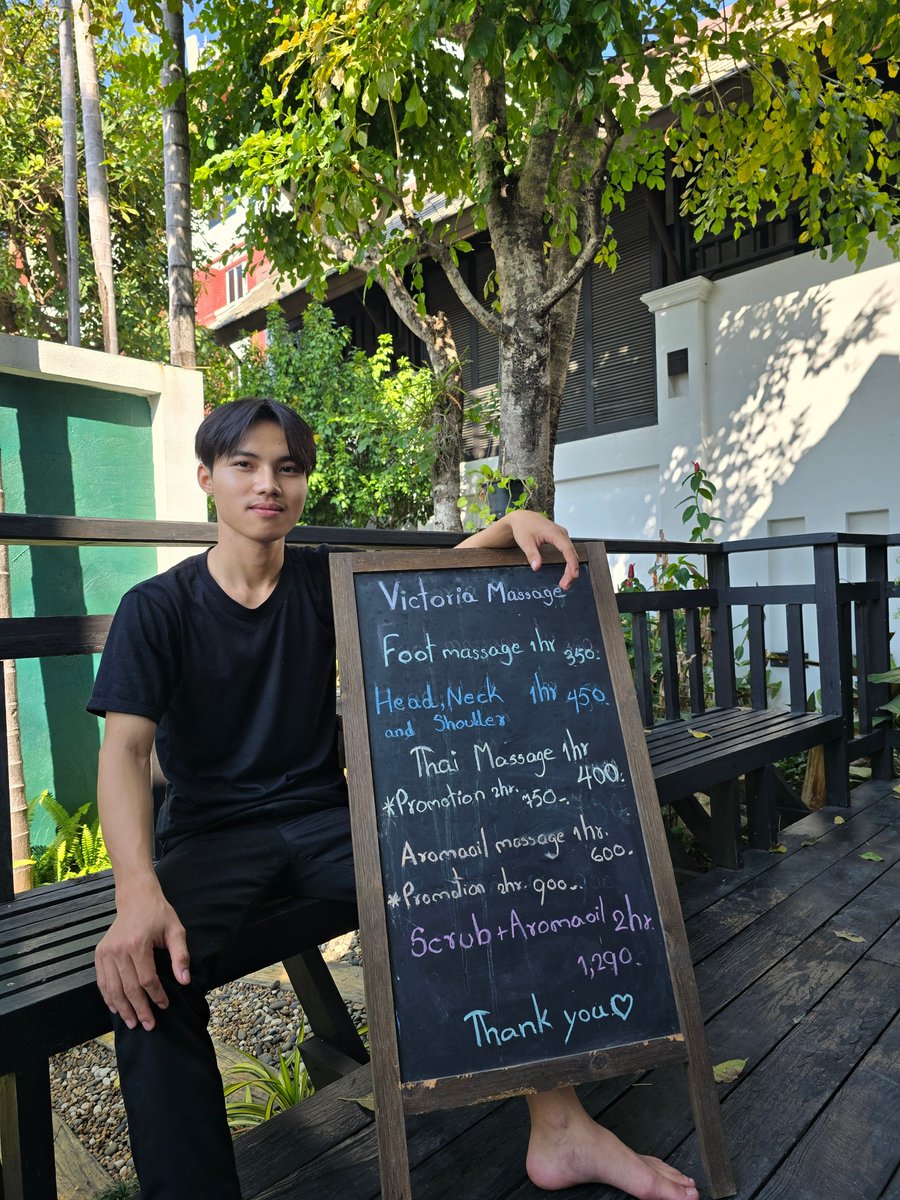 Victoria Massage
Foot massage 1hr 350.-
Head, Neck 1hr 450.
and Shouller
Thai Massage 1hr
400.-
*Promotion 2hr. 750.-
Aromaoil massage 1hr.
600.-
*Promotion 2hr. 900.-
Scrub + Aromaoil 2hr.
1,290.
Thank you♡